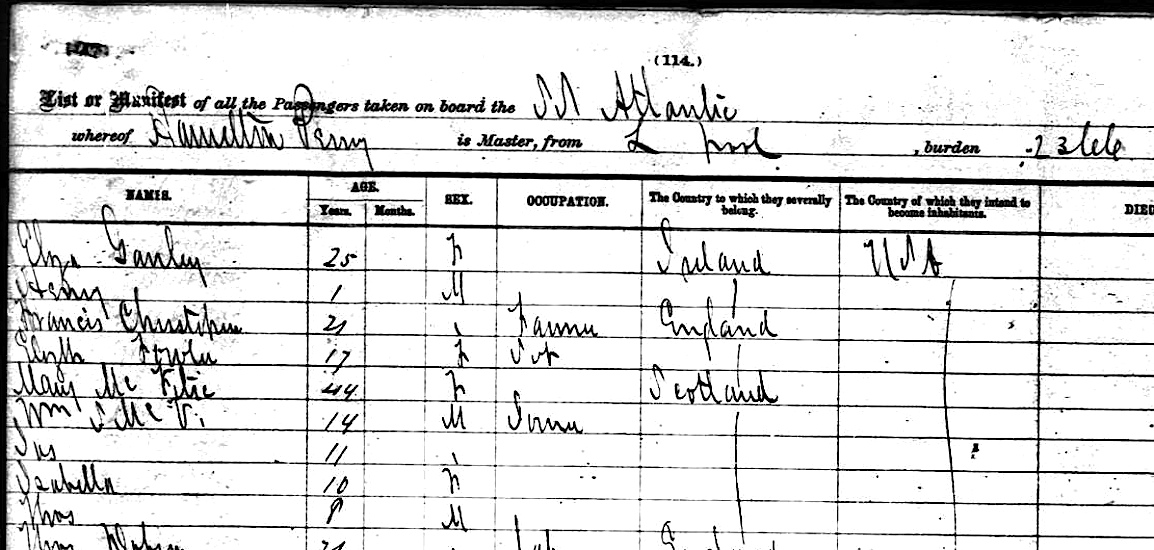 (114.)
List or Manifest of all the Passengers taken on board the SS Atlantic
whereof Hamilton Perry is Master, from L pool , burden 2366
NAMES. AGE. SEX. OCCUPATION. The Country to which they severally belong. The Country of which they intend to become inhabitants.
Years. Months.
Eliza Ganley 25 F Ireland USA
Henry 1 M
Francis Christopher 21 Farmer England
Elizth Fowler 17 F
Mary Mc 44 F Scotland
Wm S Mc 14 M
Jas 11
Isabella 10 F
Thos 8 M
Thos